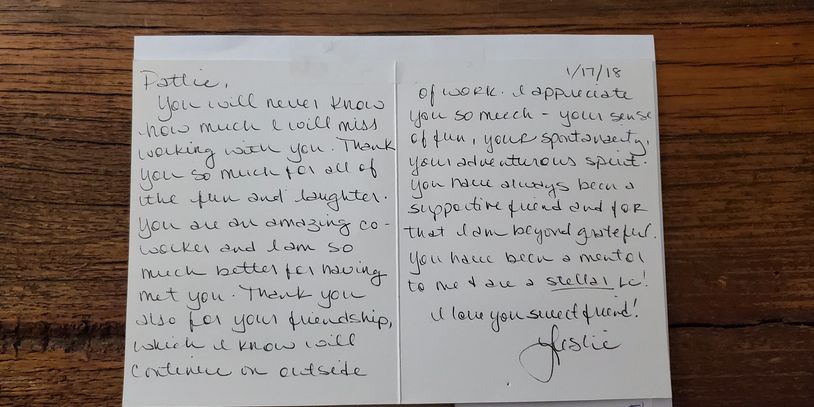 Pattie,
You will never know
how much I will miss
working with you. Thank
you so much for all of
the fun and laughter.
You are an amazing co-
worker and I am so
much better for having
met you. Thank you
also for your friendship,
which I know will
continue on outside
1/17/18
of work. I appreciate
you so much - your sense
of fun, your spontaneity,
your adventurous spirit.
You have always been a
supportive friend and for
that I am beyond grateful.
You have been a mentor
to me & are a stellar LC!
I love you sweet friend!
Leslie